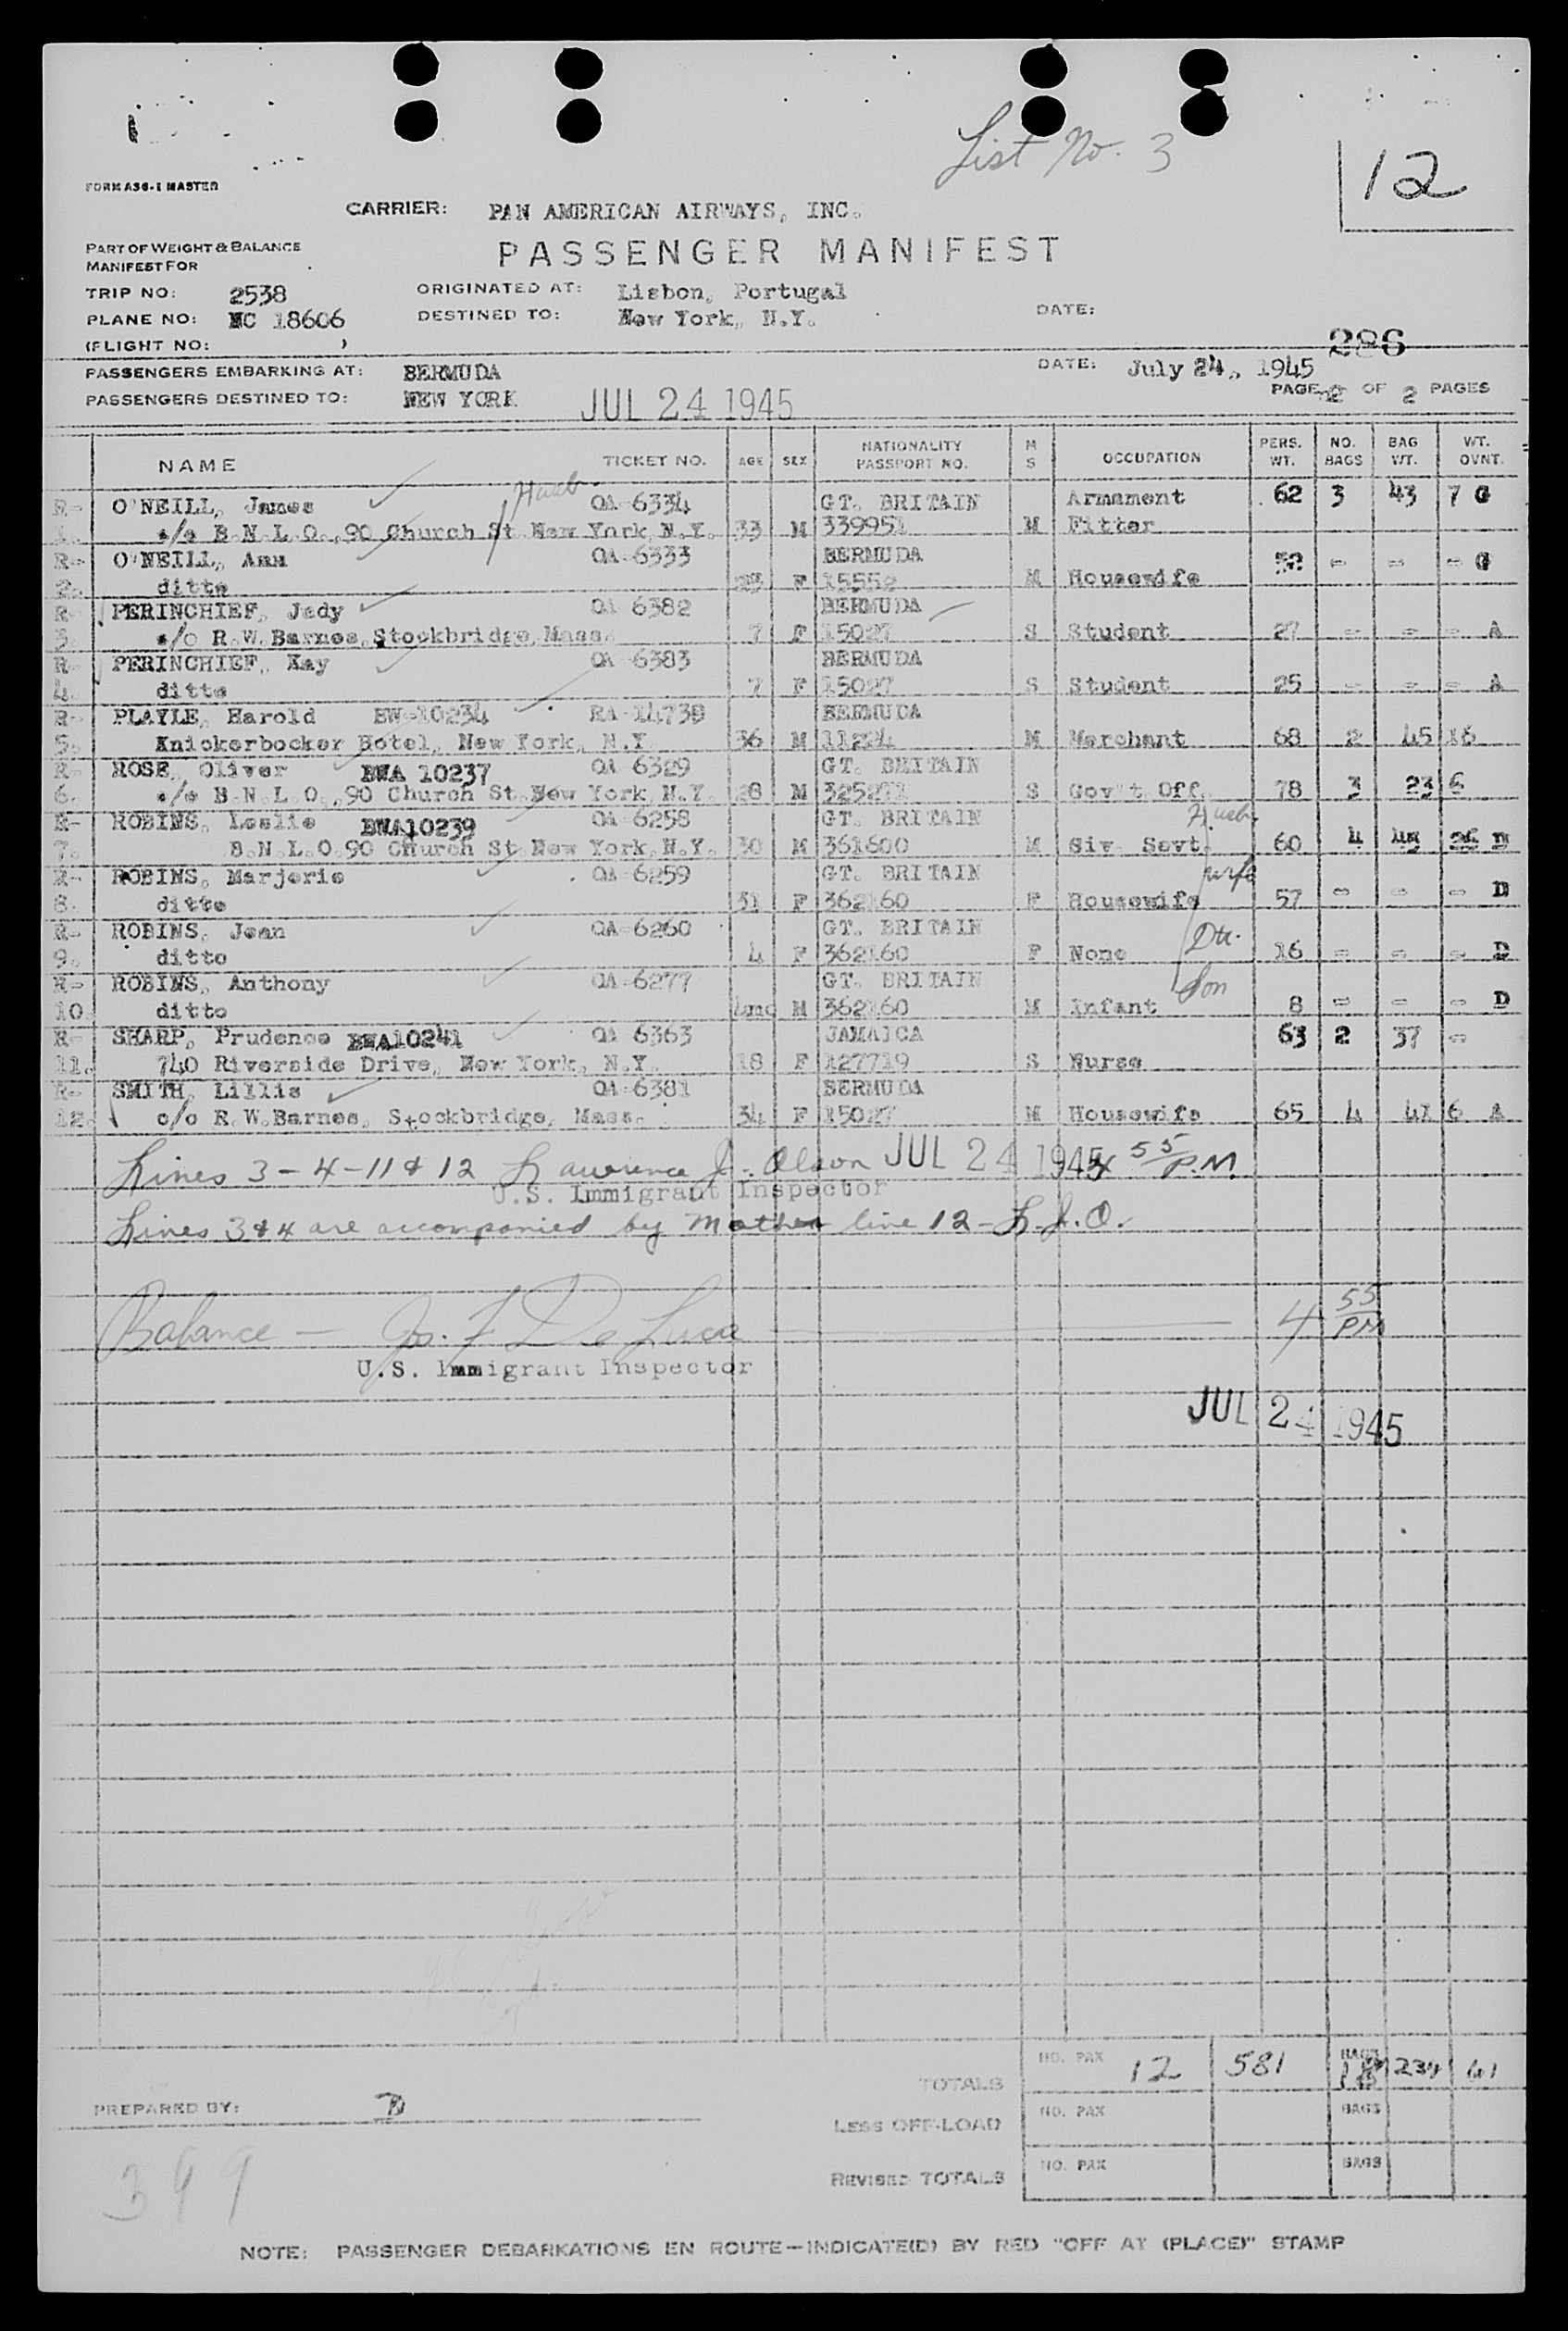 List No. 3
12
FORM A36-1 MASTER
CARRIER: PAN AMERICAN AIRWAYS, INC.
PART OF WEIGHT & BALANCE
MANIFEST FOR
PASSENGER MANIFEST
TRIP NO: 2538 ORIGINATED AT: Lisbon, Portugal
PLANE NO: NC 18606 DESTINED TO: New York, N.Y. DATE:
(FLIGHT NO: )
286
PASSENGERS EMBARKING AT: BERMUDA DATE: July 24, 1945
PASSENGERS DESTINED TO: NEW YORK JUL 24 1945 PAGE 2 OF 2 PAGES
NAME TICKET NO. AGE SEX NATIONALITY PASSPORT NO. M S OCCUPATION PERS. WT. NO. BAGS BAG WT. WT. OVNT.
R- O'NEILL, James Husb. QA-6334 GT. BRITAIN Armament 62 3 43 7 G
1. c/o B.N.L.O.,90 Church St New York N.Y. 33 M 339951 M Fitter
R- O'NEILL, Ann QA-6333 BERMUDA 52 - - - G
2. ditto 23 F 15552 M Housewife
R- PERINCHIEF, Jedy QA 6382 BERMUDA
3. c/o R.W.Barnes,Stockbridge,Mass. 7 F 15027 S Student 27 - - - A
R- PERINCHIEF, Kay QA 6383 BERMUDA
4. ditto 7 F 15027 S Student 25 - - - A
R- PLAYLE, Harold BW-10234 RA-14738 BERMUDA
5. Knickerbocker Hotel, New York, N.Y 36 M 11224 M Merchant 68 2 45 16
R- ROSE, Oliver BWA 10237 QA 6329 GT. BRITAIN
6. c/o B.N.L.O.,90 Church St.New York N.Y. 28 M S Gov't Off. 78 3 23 6
R- ROBINS, Leslie BWA10239 QA 6258 GT. BRITAIN Husb.
7. B.N.L.O.90 Church St New York,N.Y. 30 M 361600 M Siv Savt. 60 4 45 26 D
R- ROBINS, Marjorie QA 6259 GT. BRITAIN wife
8. ditto 31 F 362160 F Housewife 57 - - - D
R- ROBINS, Jean QA-6260 GT. BRITAIN
9. ditto 4 F 362160 F None Dtr. 16 - - - D
R- ROBINS, Anthony QA-6277 GT. BRITAIN Son
10. ditto 4mo M 362160 M Infant 8 - - - D
R- SHARP, Prudence BWA10241 QA 6363 JAMAICA 63 2 37 -
11. 740 Riverside Drive, New York, N.Y. 18 F 127719 S Nurse
R- SMITH, Lillis QA-6381 BERMUDA
12. c/o R.W.Barnes, Stockbridge, Mass. 34 F 15027 M Housewife 65 4 41 6 A
Lines 3-4-11 & 12 Lawrence J. Olson JUL 24 1945 4 55 P.M
U.S. Immigrant Inspector
Lines 3 & 4 are accompanied by Mother line 12 - L.J.O.
Balance - Jos. F. De Luca 4 55 PM
U.S. Immigrant Inspector
JUL 24 1945
TOTALS NO. PAX 12 581 BAGS 18 234 61
PREPARED BY: B
LESS OFF-LOAD NO. PAX BAGS
REVISED TOTALS NO. PAX BAGS
399
NOTE: PASSENGER DEBARKATIONS EN ROUTE—INDICATE(D) BY RED "OFF AT (PLACE)" STAMP